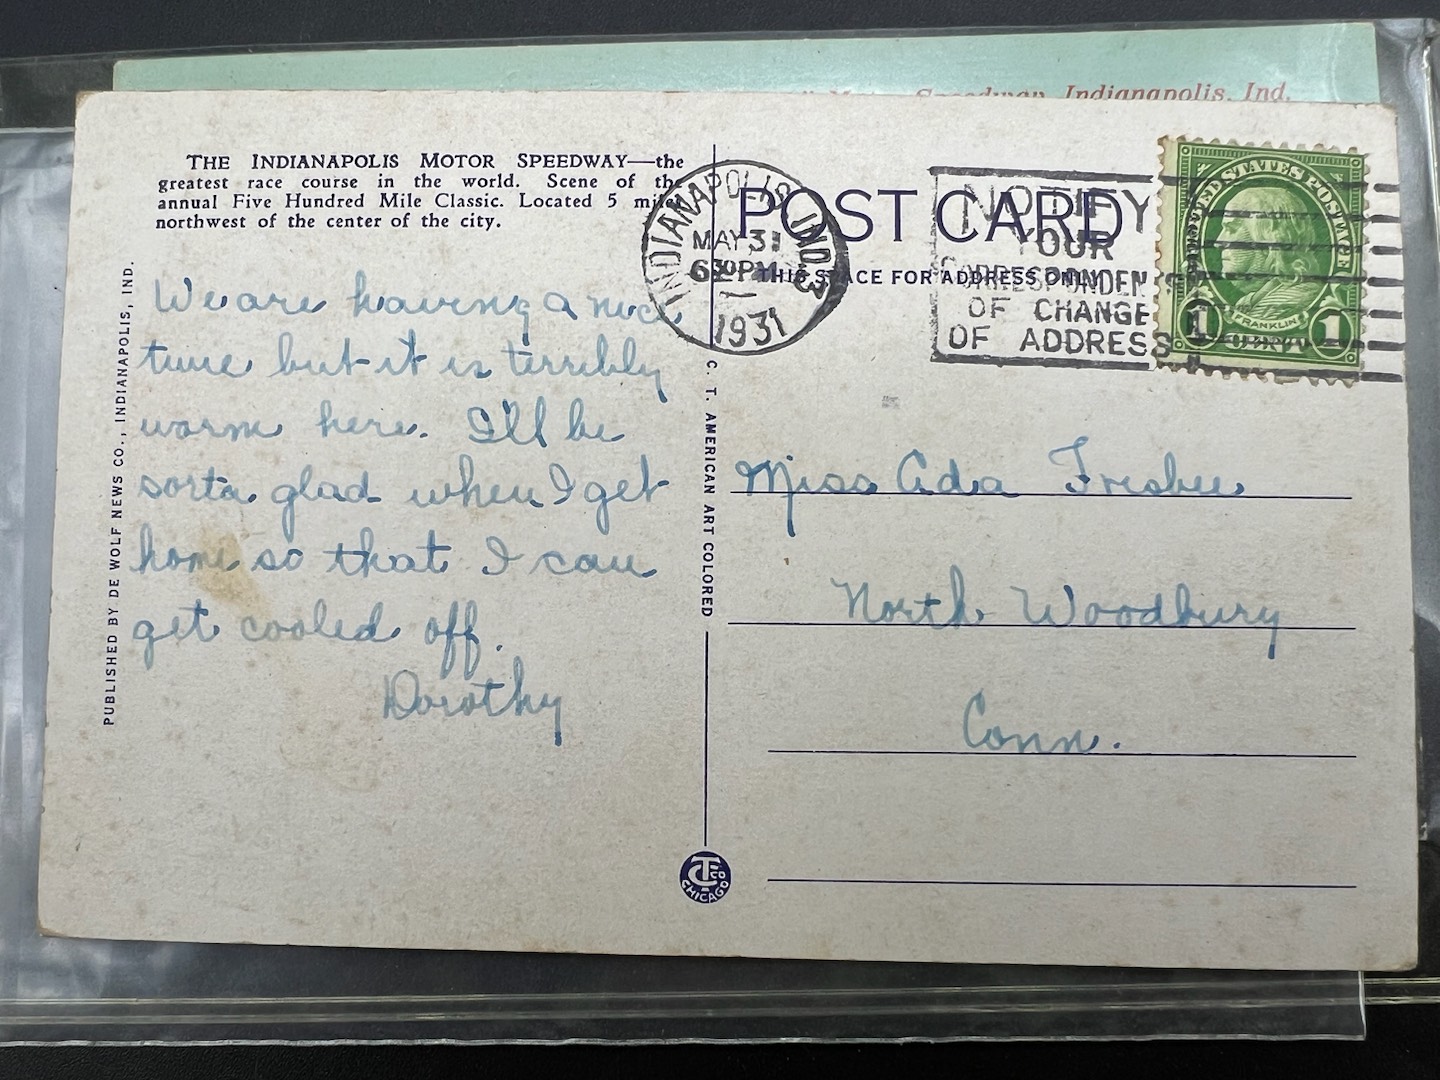 Motor Speedway, Indianapolis, Ind.
THE INDIANAPOLIS MOTOR SPEEDWAY—the
greatest race course in the world. Scene of the
annual Five Hundred Mile Classic. Located 5 miles
northwest of the center of the city.
POST CARD
THIS SPACE FOR ADDRESS ONLY
INDIANAPOLIS, IND. 3
MAY 31
6 30 PM
1931
NOTIFY
YOUR
CORRESPONDENTS
OF CHANGE
OF ADDRESS
UNITED STATES POSTAGE
FRANKLIN
1 CENT 1
We are having a nice
time but it is terribly
warm here. I'll be
sorta glad when I get
home so that I can
get cooled off.
Dorothy
Miss Ada Frisbie
North Woodbury
Conn.
PUBLISHED BY DE WOLF NEWS CO., INDIANAPOLIS, IND.
C. T. AMERICAN ART COLORED
CT CO
CHICAGO